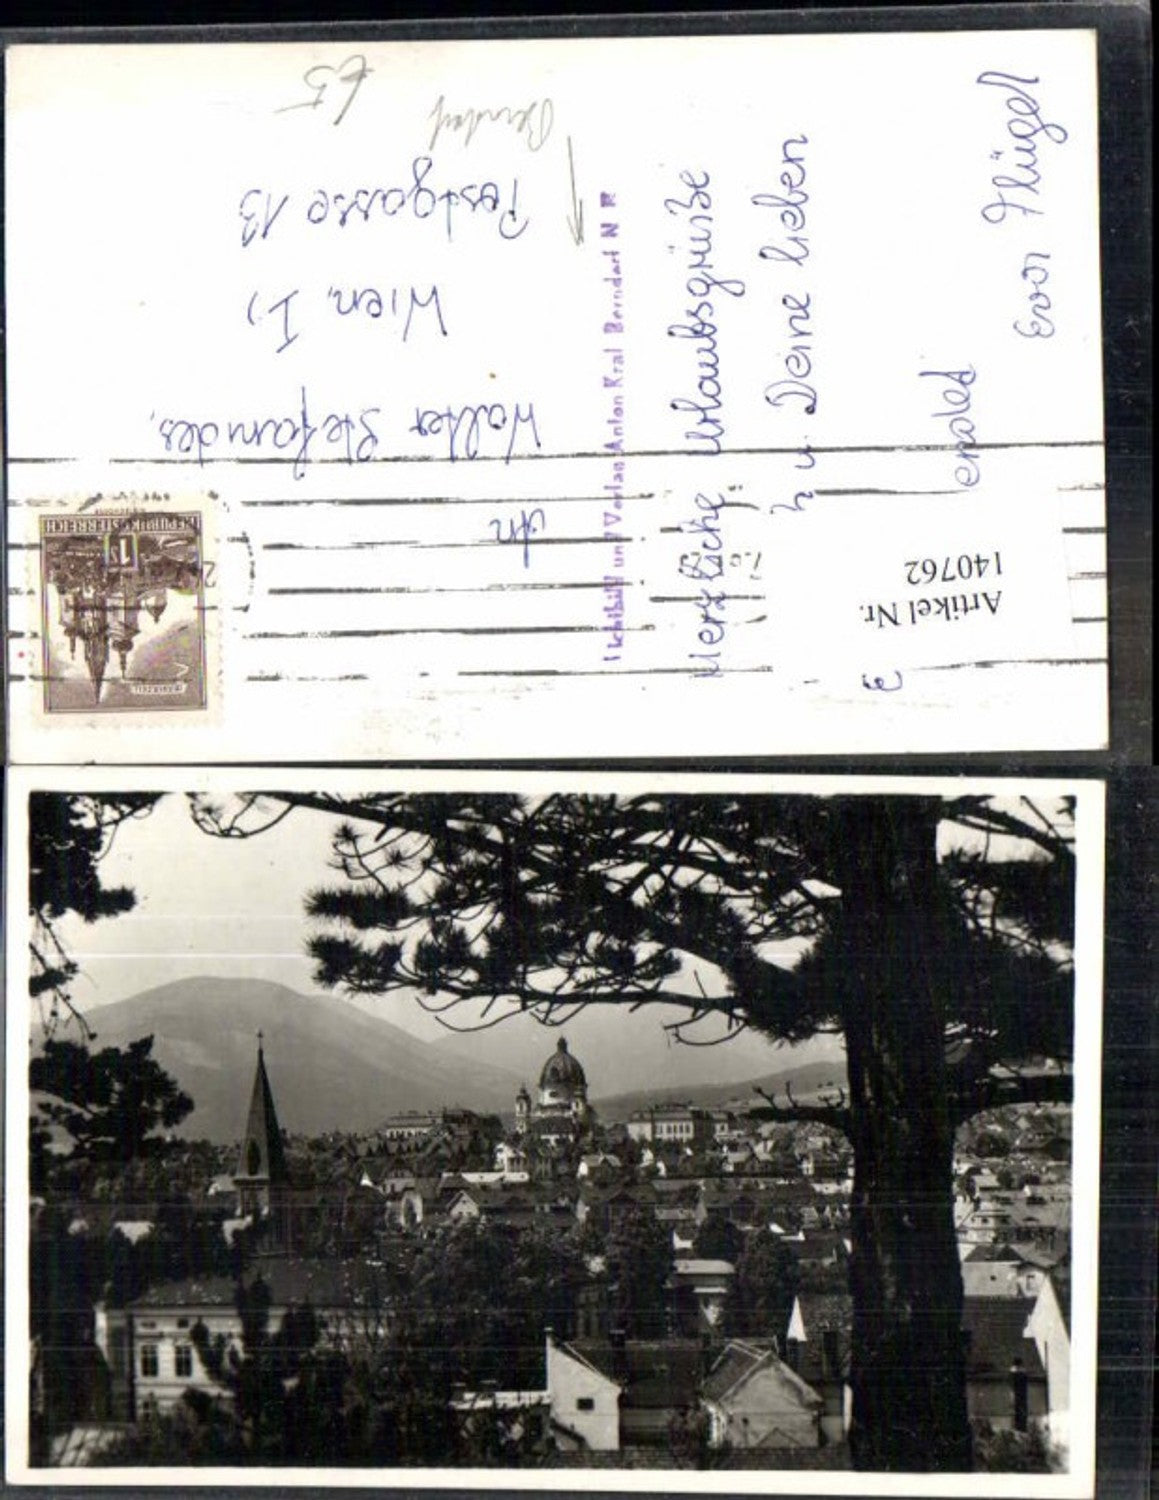 Herzliche Urlaubsgrüße
u Deine lieben
Eva Flügel
An
Walter
Wien, I,
Postgasse 13
Berndorf
Lichtbild und Verlag Anton Kral Berndorf N Ö
REPUBLIK ÖSTERREICH
1 S
Artikel Nr.
140762